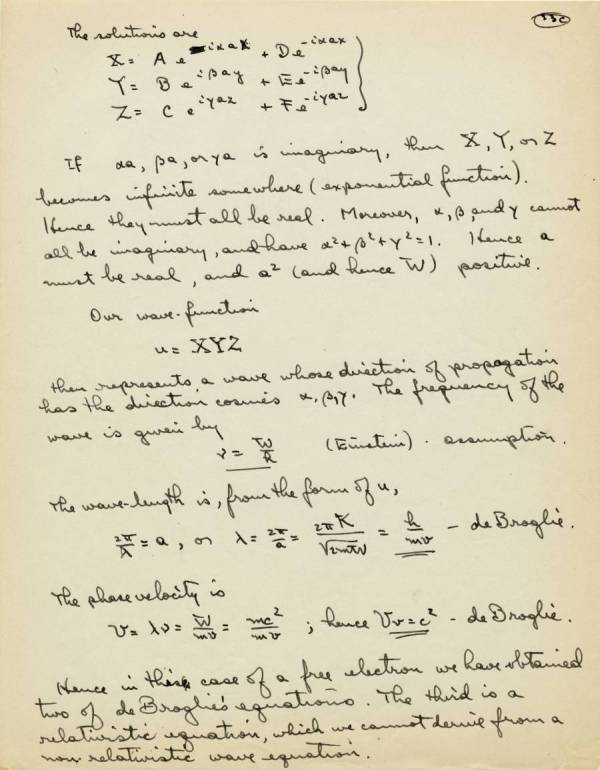 33c
The solutions are
X = A e^{iαax} + D e^{-iαax}
Y = B e^{iβay} + E e^{-iβay}
Z = C e^{iγaz} + F e^{-iγaz}
If αa, βa, or γa is imaginary, then X, Y, or Z
becomes infinite somewhere (exponential function).
Hence they must all be real. Moreover, α, β, and γ cannot
all be imaginary, and have α²+β²+γ²=1. Hence a
must be real, and a² (and hence W) positive.
Our wave-function
u = XYZ
then represents a wave whose direction of propagation
has the direction cosines α, β, γ. The frequency of the
wave is given by
ν = W/h (Einstein) - assumption.
The wave-length is, from the form of u,
2π/λ = a, or λ = 2π/a = 2πK/√2mW = h/mv - de Broglie.
The phase velocity is
V = λν = W/mv = mc²/mv ; hence Vv = c² - de Broglie.
Hence in this case of a free electron we have obtained
two of de Broglie's equations. The third is a
relativistic equation, which we cannot derive from a
non relativistic wave equation.